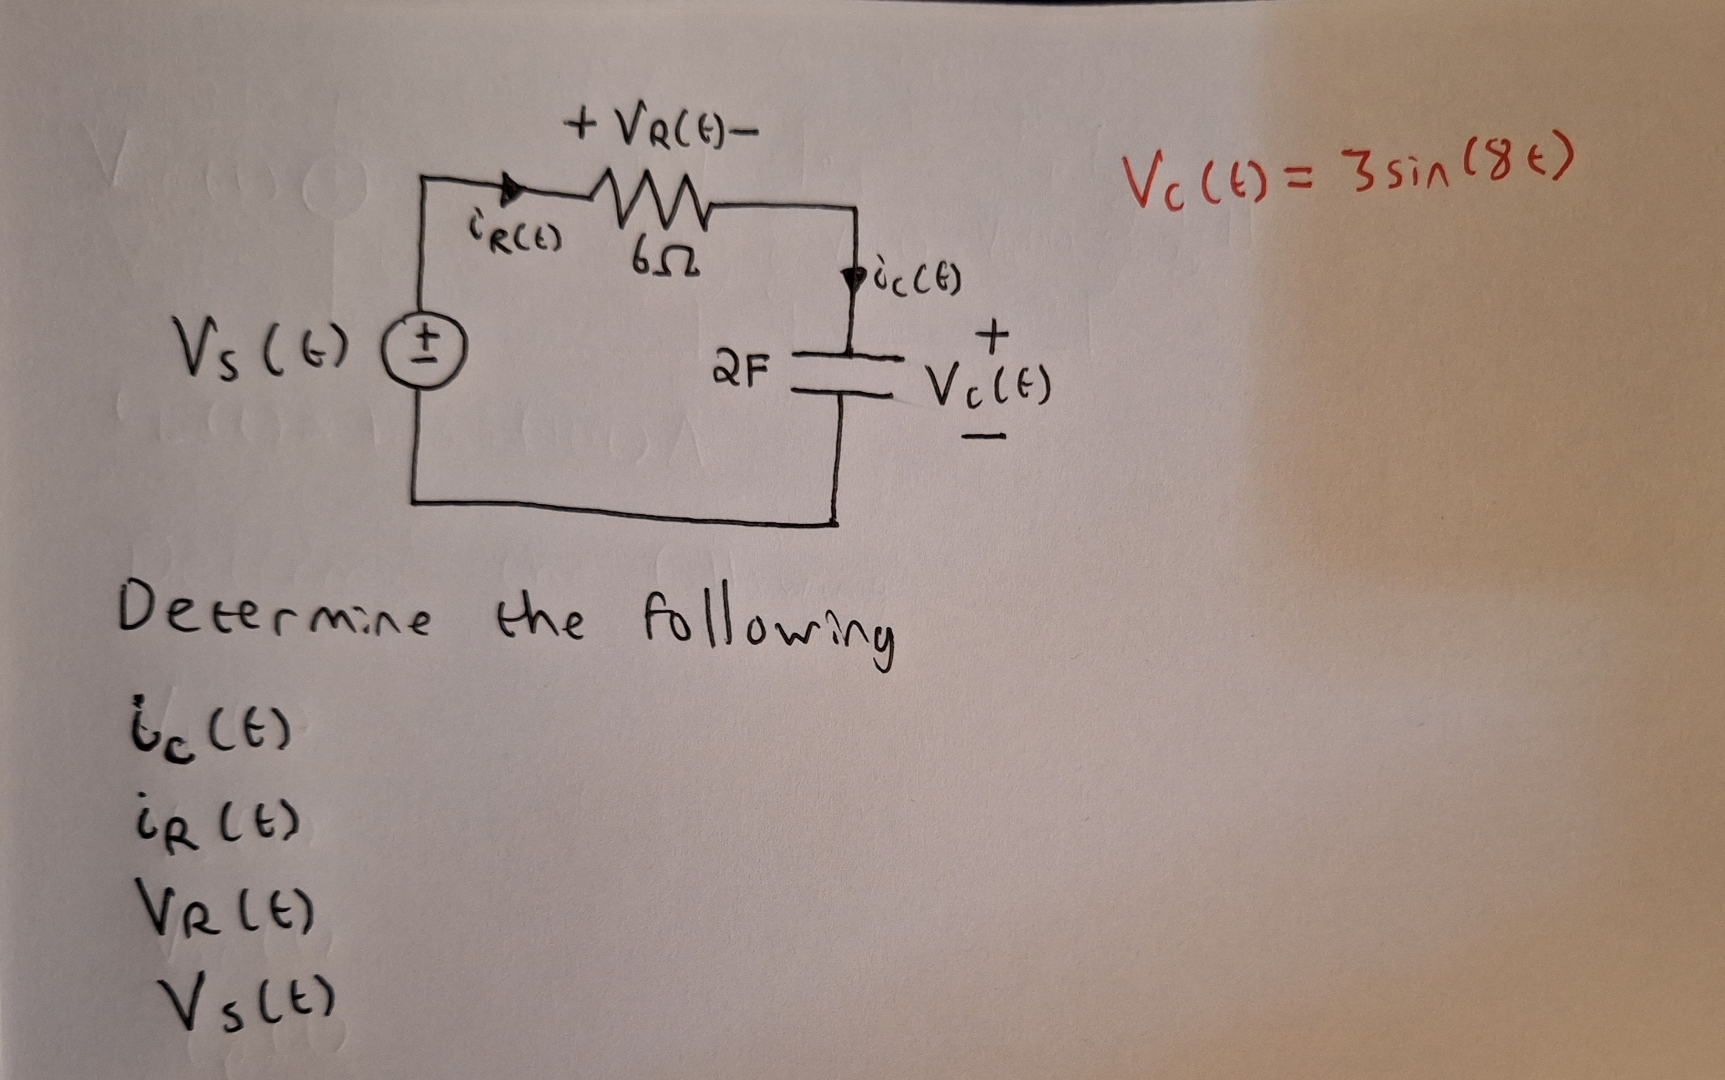 + VR(t) −
Vc(t) = 3sin(8t)
iR(t)
6Ω
ic(t)
Vs(t)
+
−
2F
+
Vc(t)
−
Determine the following
ic(t)
iR(t)
VR(t)
Vs(t)